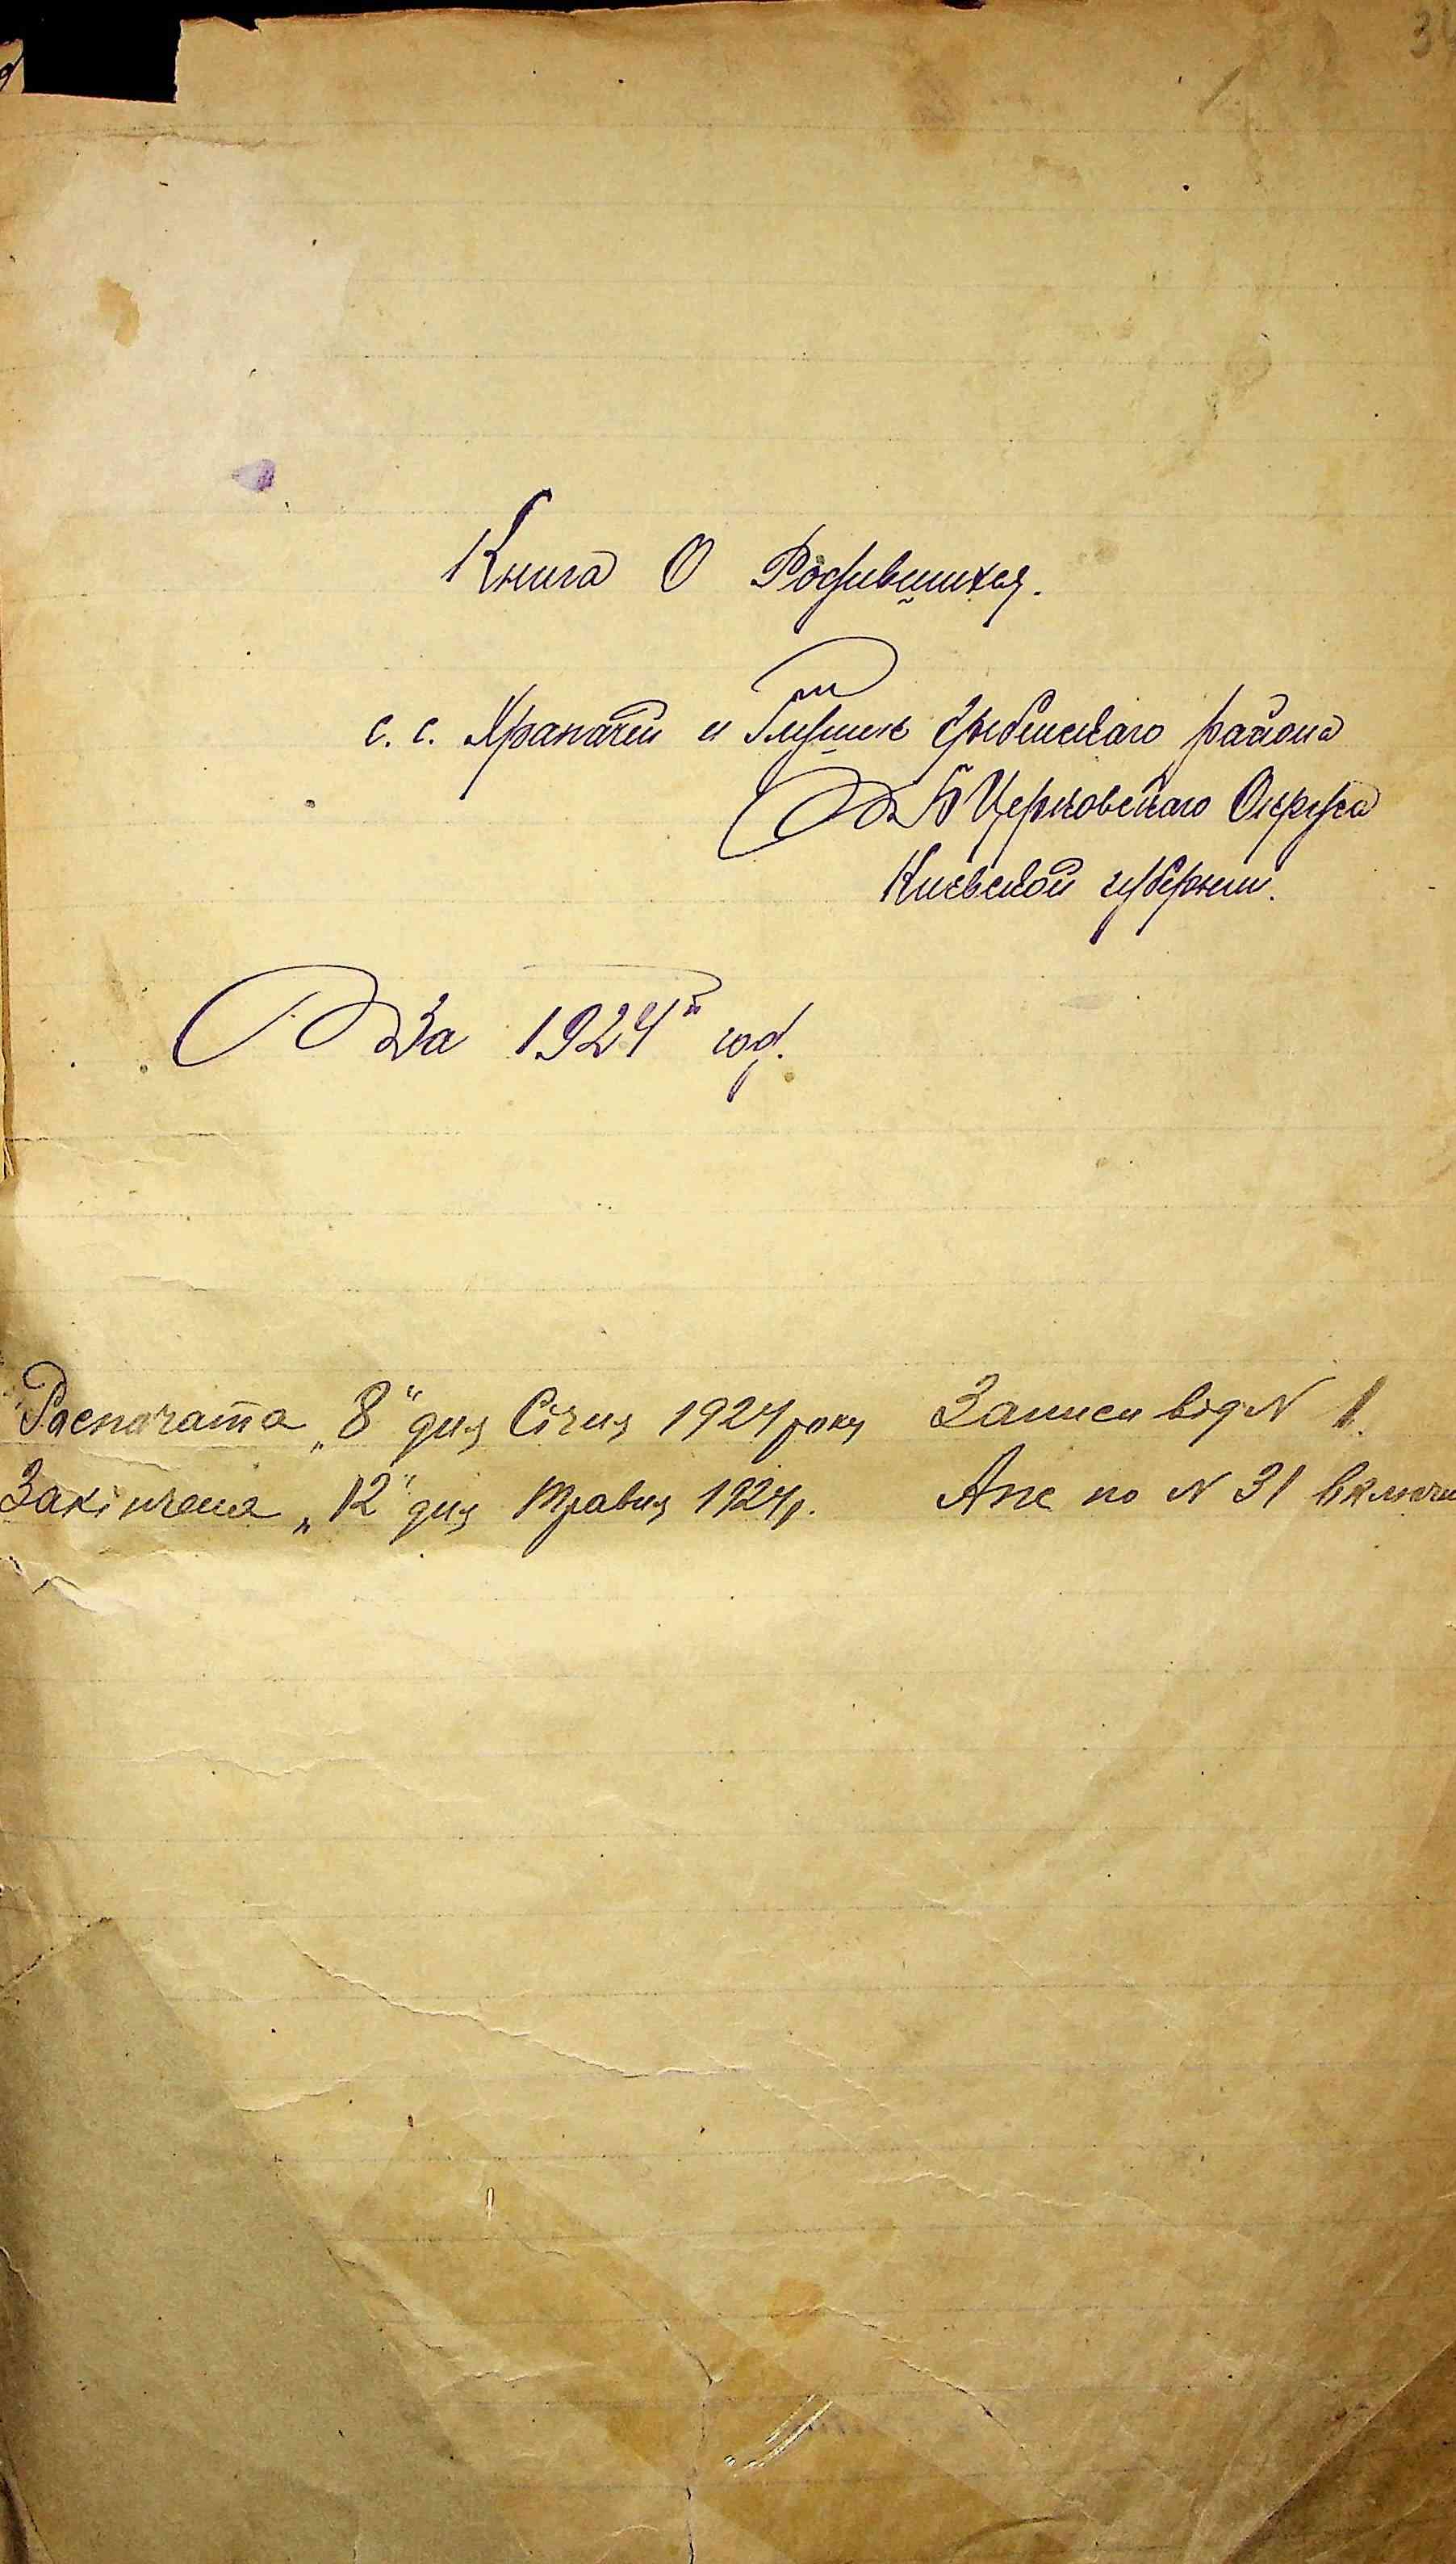 Книга О Родившихся.
с. с. Храпачей и Глушек Гребенскаго района
Б Церковскаго Округа
Киевской губернии.
За 1924й год.
Роспочата „8“ дня Січня 1924 року Записи від N 1.
Закінчена „12“ дня Травня 1924 р. по N 31 включи